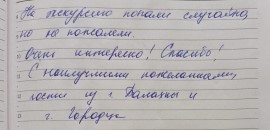 На экскурсию попали случайно,
но не пожалели.
Очень интересно! Спасибо!
С наилучшими пожеланиями,
гости из г. Балахны и
г. Городец